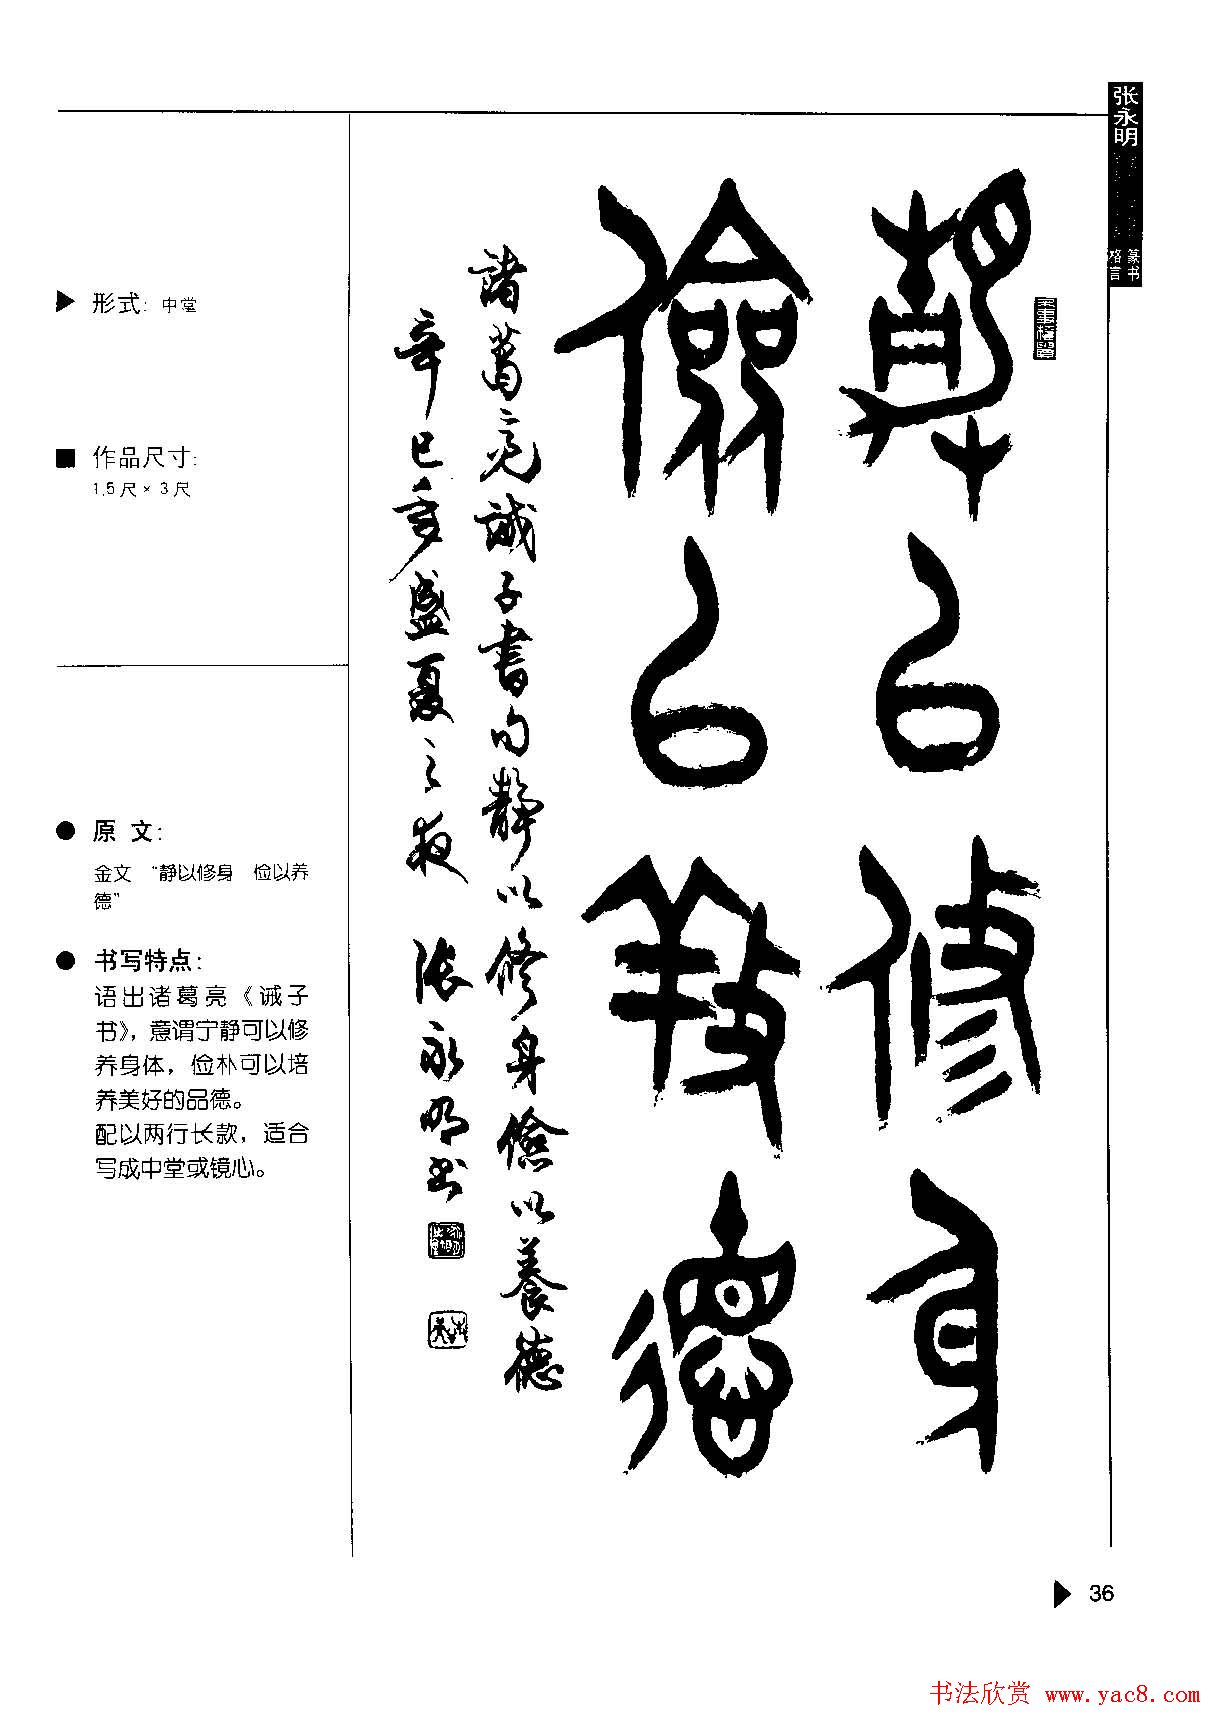 张永明
篆书
格言
形式：中堂
作品尺寸：
1.5尺×3尺
原 文：
金文 “静以修身 俭以养
德”
书写特点：
语出诸葛亮《诫子
书》，意谓宁静可以修
养身体，俭朴可以培
养美好的品德。
配以两行长款，适合
写成中堂或镜心。
静以修身
儉以養德
諸葛亮誡子書句靜以修身儉以養德
辛巳年盛夏之夜 张永明书
36
书法欣赏 www.yac8.com